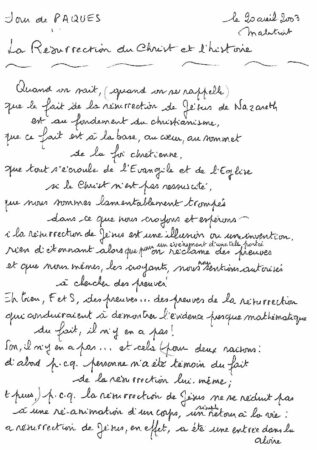 Jour de PAQUES
le 20 avril 2003
Malestroit
La Résurrection du Christ et l'histoire
Quand on sait, (quand on se rappelle)
que le fait de la résurrection de Jésus de Nazareth
est au fondement du christianisme,
que ce fait est à la base, au cœur, au sommet
de la foi chrétienne,
que tout s'écroule de l'Evangile et de l'Eglise
si le Christ n'est pas ressuscité,
que nous sommes lamentablement trompés
dans ce que nous croyons et espérons
si la résurrection de Jésus est une illusion ou une invention,
pour un évènement d'une telle portée
rien d'étonnant alors que on réclame des preuves
et que nous mêmes, les croyants, nous nous sentions autorisés
à chercher des preuves
Eh bien, F et S, des preuves... des preuves de la résurrection
qui conduiraient à démontrer l'évidence presque mathématique
du fait, il n'y en a pas!
Non, il n'y en a pas... et cela (pour deux raisons:
d'abord p.c.q. personne n'a été témoin du fait
de la résurrection lui-même;
et puis,) p.c.q. la résurrection de Jésus ne se réduit pas
à une ré-animation d'un corps, simple un retour à la vie:
la résurrection de Jésus, en effet, a été une entrée dans la
gloire